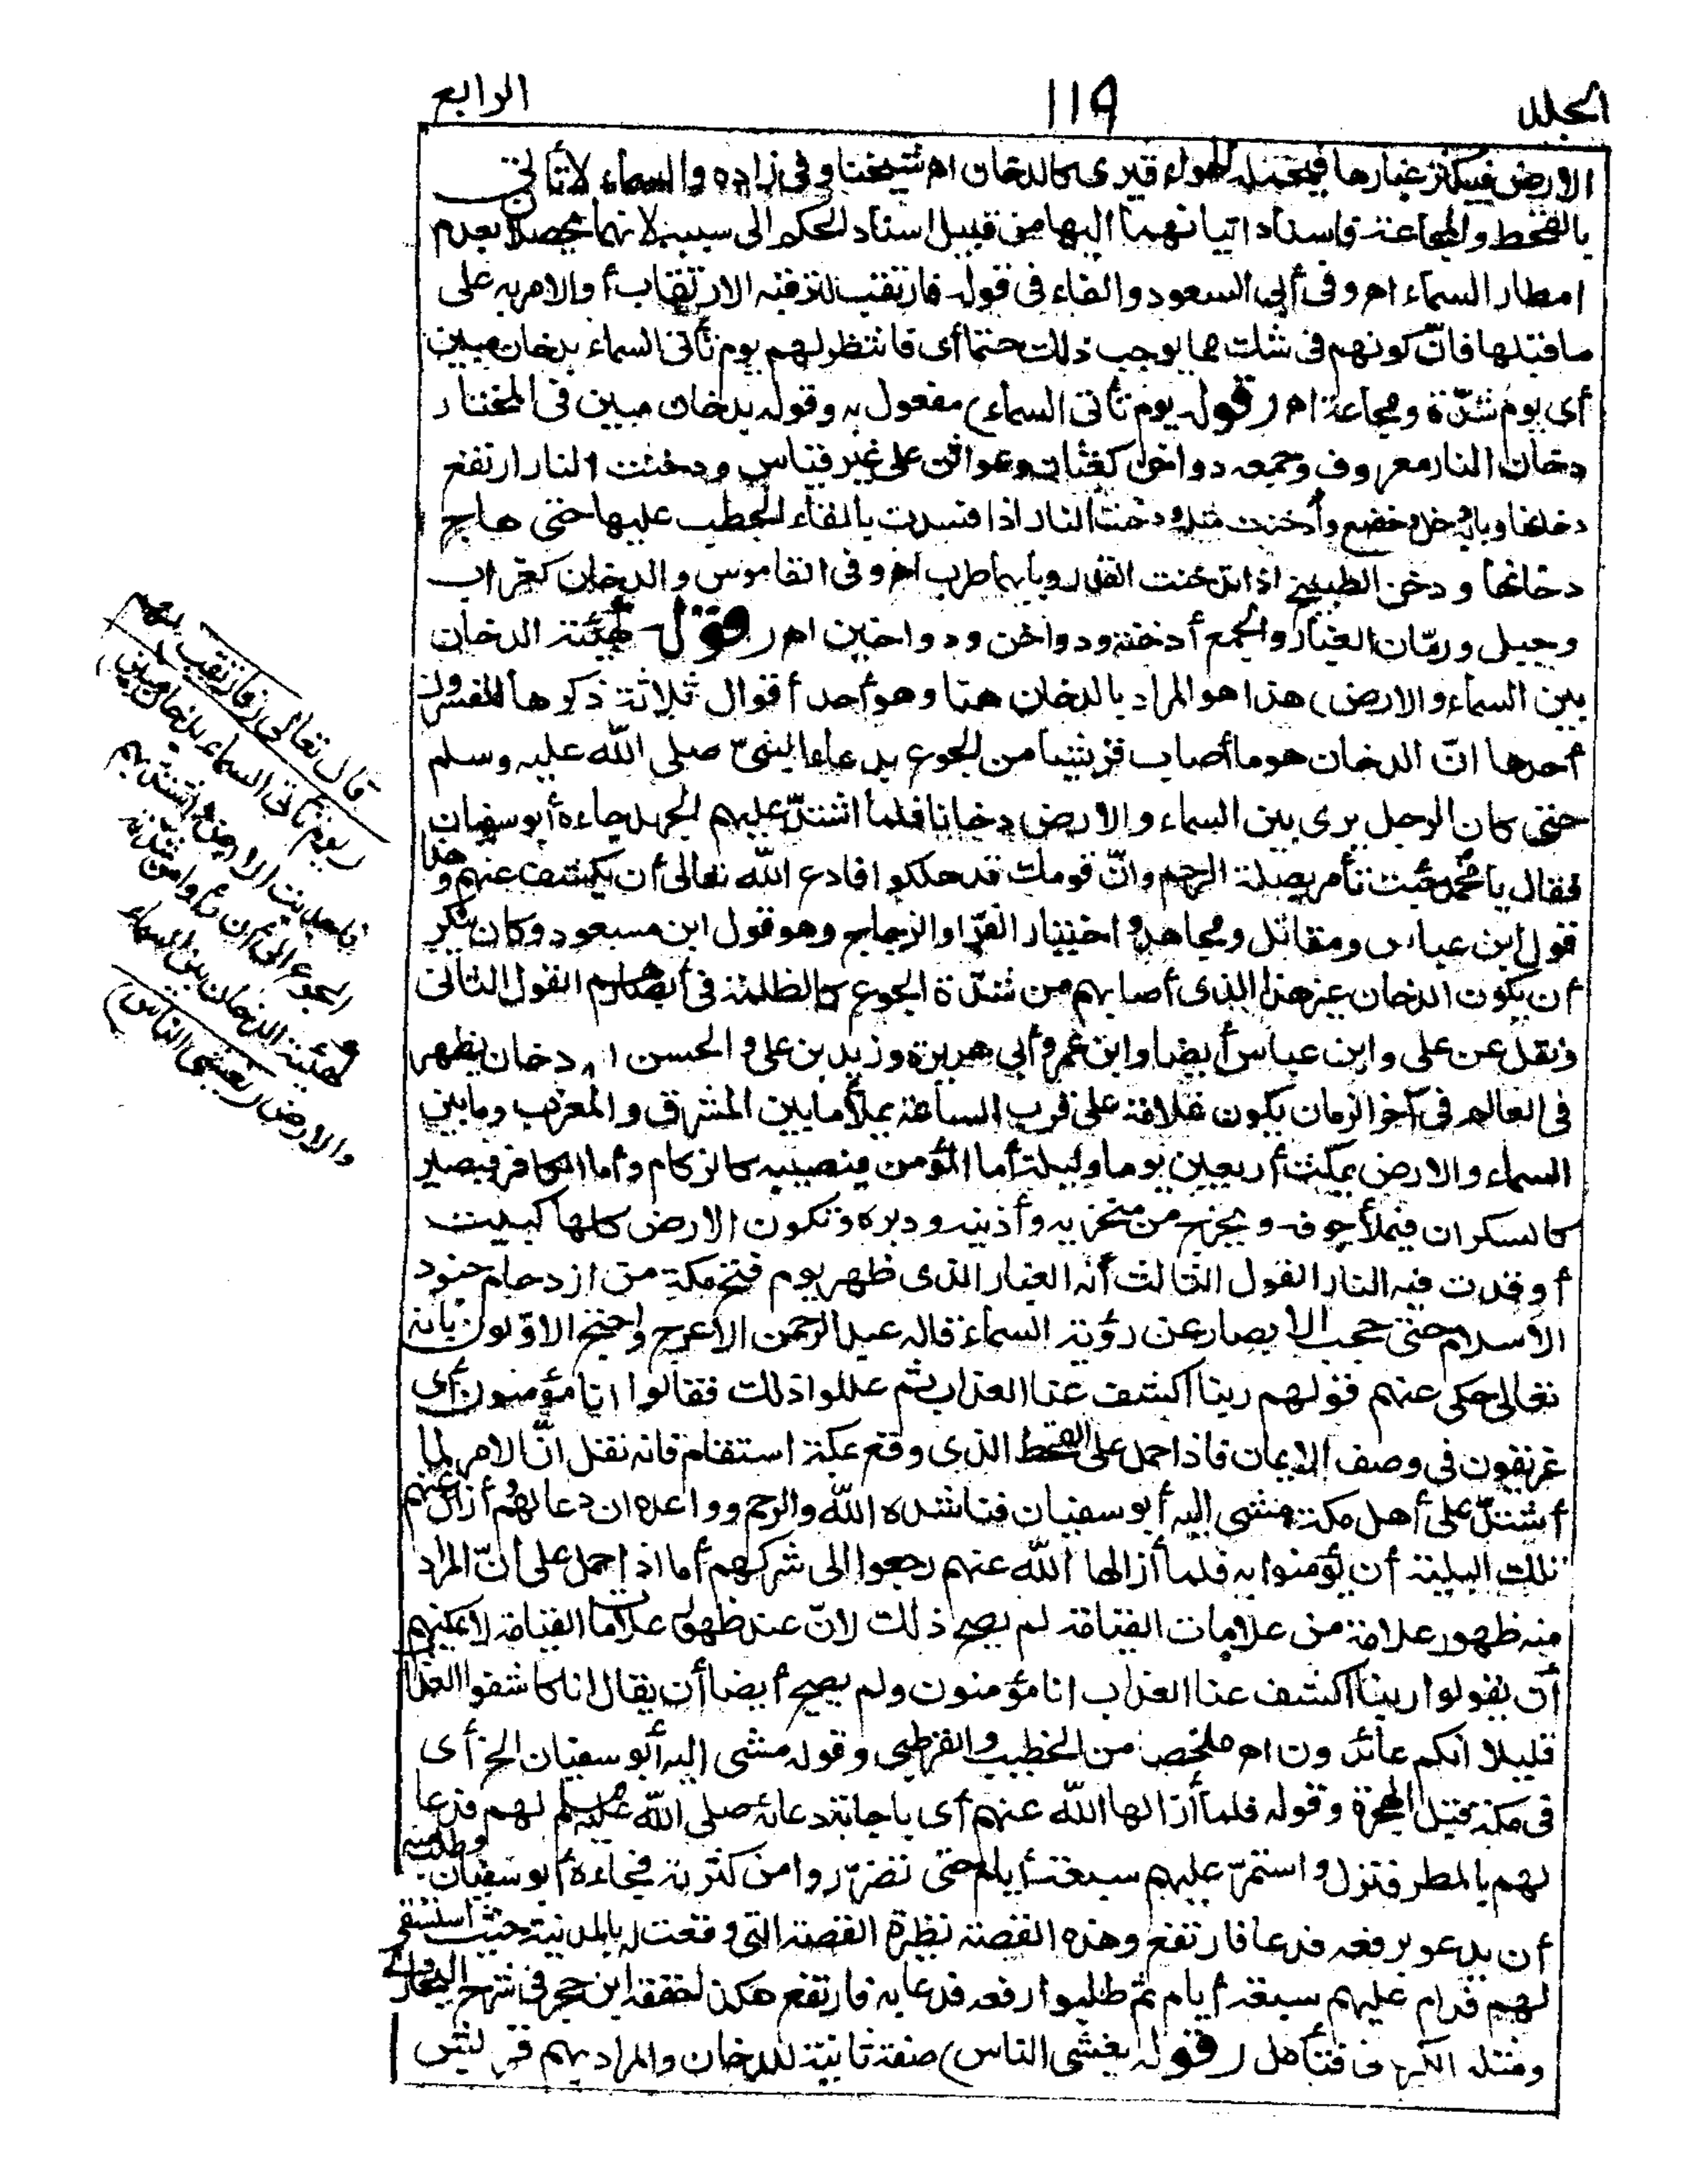 المجلد
١١٩
الرابع
الارض فيكثر غبارها فيحمله الهواء فيرى كالدخان اهـ شيخنا وفى زاده والسماء لا تأتى
بالقحط والمجاعة فاسناد اتيانهما اليها من قبيل اسناد الحكم الى سببه لانهما يحصلان بعدم
امطار السماء اهـ وفى أبى السعود والفاء فى قوله فارتقب لترتيب الارتقاب أو الامر به على
ما قبلها فانّ كونهم فى شك مما يوجب ذلك حتما أى فانتظر لهم يوم تأتى السماء بدخان مبين
أى يوم شدّة ومجاعة اهـ (قوله يوم تأتى السماء) مفعول به وقوله بدخان مبين فى المختار
دخان النار معروف وجمعه دواخن كعثان وعواثن على غير قياس ودخنت النار ارتفع
دخانها وبابه دخل وخضع وأدخنت مثله ودخنت النار اذا فسدت بالقاء الحطب عليها حتى هاج
دخانها ودخن الطبيخ اذا تدخنت القدر وبابهما طرب اهـ وفى القاموس والدخان كغراب
وجبل ورمّان الغبار والجمع أدخنة ودواخن ودواخين اهـ (قوله كهيئة الدخان
بين السماء والارض) هذا هو المراد بالدخان هنا وهو أحد أقوال ثلاثة ذكرها المفسرون
أحدها انّ الدخان هو ما أصاب قريشا من الجوع بدعاء النبىّ صلى الله عليه وسلم
حتى كان الرجل يرى بين السماء والارض دخانا فلما اشتدّ عليهم الجهد جاءه أبو سفيان
فقال يا محمد جئت تأمر بصلة الرحم وانّ قومك قد هلكوا فادع الله تعالى أن يكشف عنهم وهذا
قول ابن عباس ومقاتل ومجاهد واختيار الفرّا والزجاج وهو قول ابن مسعود وكان ينكر
أن يكون الدخان غير هذا الذى أصابهم من شدّة الجوع كالظلمة فى أبصارهم القول الثانى
ونقل عن على وابن عباس أيضا وابن عمر وأبى هريرة وزيد بن على والحسن انه دخان يظهر
فى العالم فى آخر الزمان يكون علامة على قرب الساعة يملأ ما بين المشرق والمغرب وما بين
السماء والارض يمكث أربعين يوما وليلة أما المؤمن فيصيبه كالزكام وأما الكافر فيصير
كالسكران فيملأ جوفه ويخرج من منخريه وأذنيه ودبره وتكون الارض كلها كبيت
أوقدت فيه النار القول الثالث أنه الغبار الذى ظهر يوم فتح مكة من ازدحام جنود
الاسلام حتى حجب الابصار عن رؤية السماء قاله عبد الرحمن الاعرج واحتج الاوّلون بانه
تعالى حكى عنهم قولهم ربنا اكشف عنا العذاب ثم عللوا ذلك فقالوا انا مؤمنون أى
عريقون فى وصف الايمان فاذا حمل على القحط الذى وقع بمكة استقام فانه نقل انّ الامر لما
اشتدّ على أهل مكة مشى اليه أبو سفيان فناشده الله والرحم وواعده ان دعا لهم وأزال عنهم
تلك البلية أن يؤمنوا به فلما أزالها الله عنهم رجعوا الى شركهم أما اذا حمل على أنّ المراد
منه ظهور علامة من علامات القيامة لم يصح ذلك لانّ عند ظهور علامات القيامة لا يمكنهم
أن يقولوا ربنا اكشف عنا العذاب انا مؤمنون ولم يصح أيضا أن يقال انا كاشفوا العذاب
قليلا انكم عائدون اهـ ملخصا من الخطيب والقرطبى وقوله مشى اليه أبو سفيان الخ أى
فى مكة قبل الهجرة وقوله فلما أزالها الله عنهم أى باجابة دعائه صلى الله عليه وسلم لهم فدعا
لهم بالمطر فنزل واستمرّ عليهم سبعة أيام حتى تضرّروا من كثرته فجاءه أبو سفيان وطلب منه
أن يدعو برفعه فدعا فارتفع وهذه القصة نظيرة القصة التى وقعت له بالمدينة حيث استسقى
لهم فدام عليهم سبعة أيام ثم طلبوا رفعه فدعا به فارتفع هكذا حققه ابن حجر فى شرح البخارى
ومثله الكرمانى فتأمل (قوله يغشى الناس) صفة ثانية للدخان والمراد بهم قريش
قال تعالى (فارتقب) لهم
(يوم تأتى السماء بدخان مبين)
فاجدبت الارض واشتد بهم
الجوع الى أن رأوا من شدته
كهيئة الدخان بين السماء
والارض (يغشى الناس)